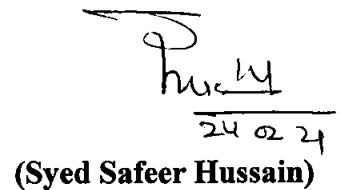 24 02 21
(Syed Safeer Hussain)